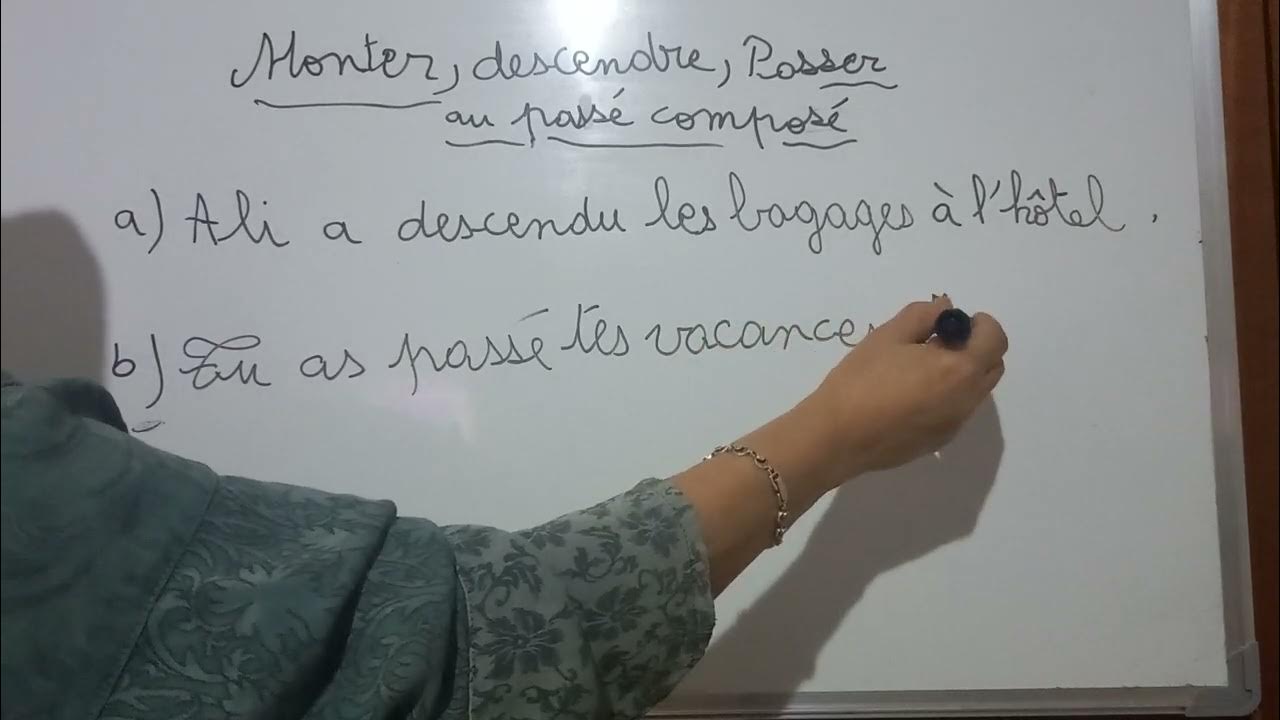 Monter, descendre, Passer
au passé composé
a) Ali a descendu les bagages à l'hôtel.
b) Tu as passé tes vacances